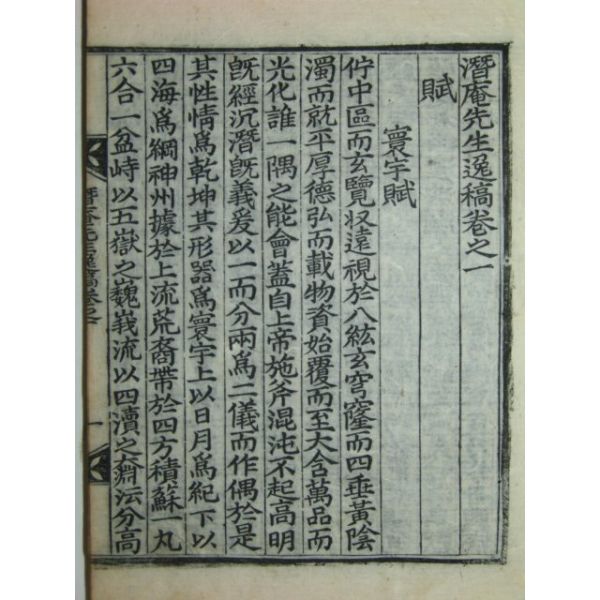 潛庵先生逸稿卷之一
賦
寰宇賦
佇中區而玄覽収遠視於八紘玄穹窿而四垂黃陰
濁而就平厚德弘而載物資始覆而至大含萬品而
光化誰一隅之能會蓋自上帝施斧混沌不起高明
旣經沉潛旣義爰以一而分兩爲二儀而作偶於是
其性情爲乾坤其形器爲寰宇上以日月爲紀下以
四海爲綱神州據於上流荒裔帶於四方積蘇一丸
六合一盆峙以五嶽之巍峩流以四瀆之㴊沄分高
潛庵先生逸稿卷之一
一